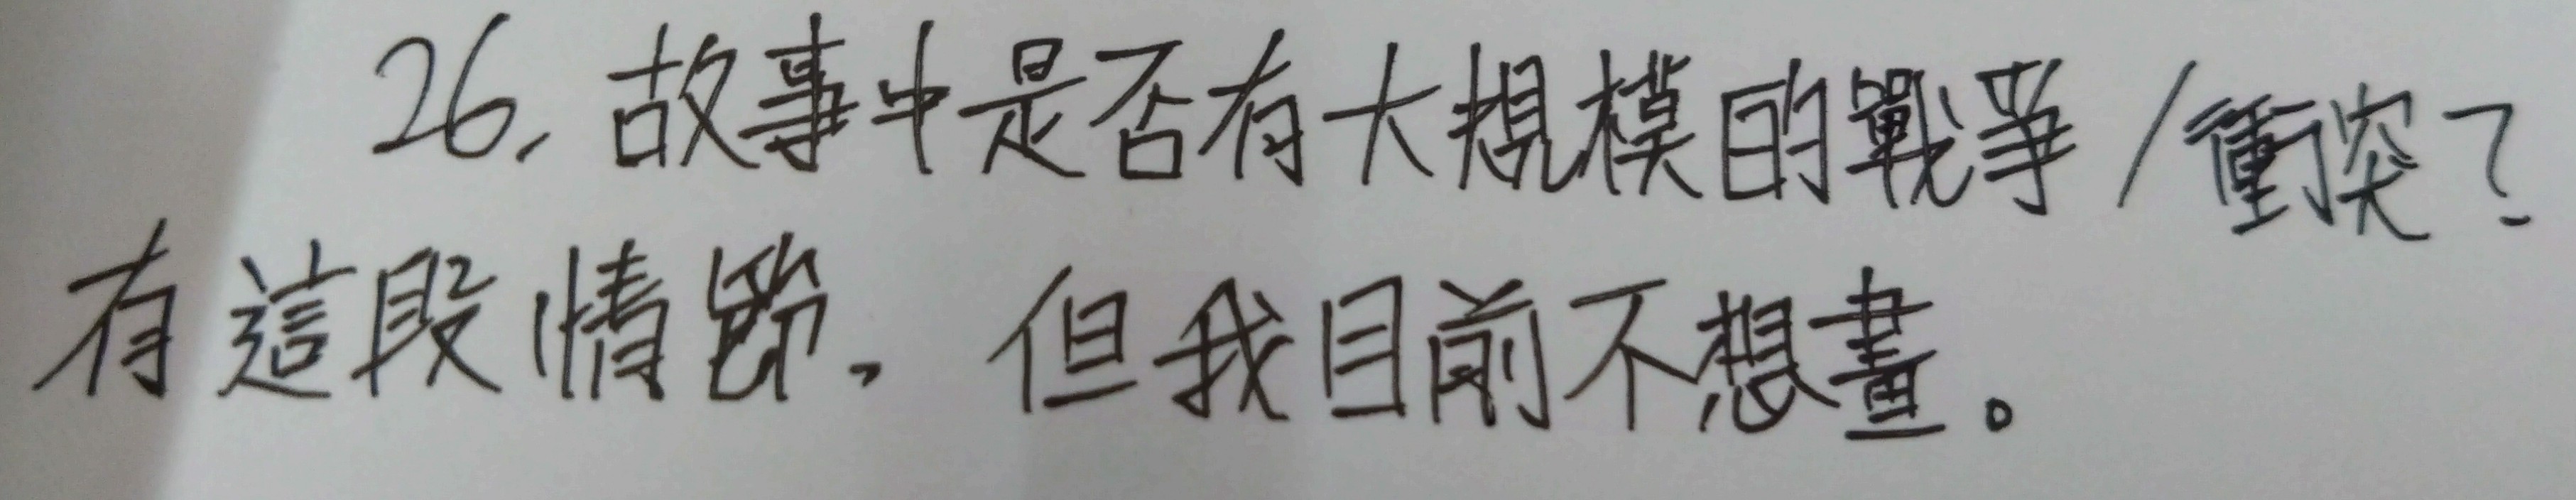 26. 故事中是否有大規模的戰爭/衝突?
有這段情節，但我目前不想畫。